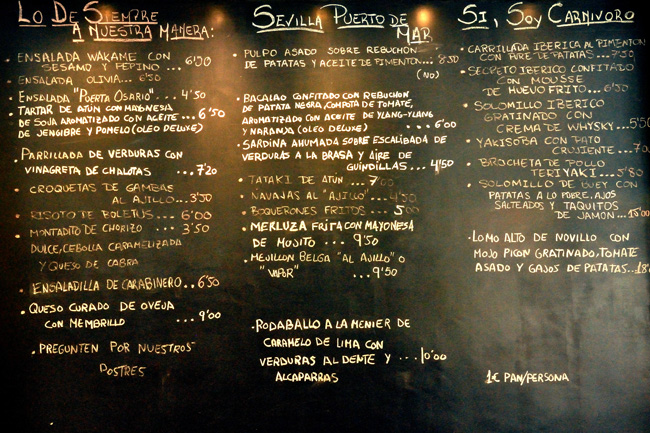 LO DE SIEMPRE
A NUESTRA MANERA:
• ENSALADA WAKAME CON
SESAMO Y PEPINO ... 6'50
• ENSALADA OLIVIA... 6'50
• ENSALADA "PUERTA OSARIO"... 4'50
• TARTAR DE ATUN CON MAYONESA
DE SOJA AROMATIZADO CON ACEITE ... 6'50
DE JENGIBRE Y POMELO (OLEO DELUXE)
• PARRILLADA DE VERDURAS CON
VINAGRETA DE CHALOTAS ... 7'20
• CROQUETAS DE GAMBAS
AL AJILLO... 3'50
• RISOTO DE BOLETUS ... 6'00
• MONTADITO DE CHORIZO ... 3'50
DULCE, CEBOLLA CARAMELIZADA
Y QUESO DE CABRA
• ENSALADILLA DE CARABINERO.. 6'50
• QUESO CURADO DE OVEJA
CON MEMBRILLO ... 9'00
• PREGUNTEN POR NUESTROS
POSTRES
SEVILLA PUERTO DE
MAR
• PULPO ASADO SOBRE REBUCHON
DE PATATAS Y ACEITE DE PIMENTON... 8'50
(NO)
• BACALAO CONFITADO CON REBUCHON
DE PATATA NEGRA, COMPOTA DE TOMATE,
AROMATIZADO CON ACEITE DE YLANG-YLANG
Y NARANJA (OLEO DELUXE) ... 6'00
• SARDINA AHUMADA SOBRE ESCALIBADA DE
VERDURAS A LA BRASA Y AIRE DE
GUINDILLAS ... 4'50
• TATAKI DE ATUN ... 7'00
• NAVAJAS AL "AJILLO"... 4'50
• BOQUERONES FRITOS ... 5'00
• MERLUZA FRITA CON MAYONESA
DE MOJITO ... 9'50
• MEJILLON BELGA "AL AJILLO" O
"VAPOR" ... 9'50
• RODABALLO A LA MENIER DE
CARAMELO DE LIMA CON
VERDURAS AL DENTE Y ... 10'00
ALCAPARRAS
SI, SOY CARNIVORO
• CARRILLADA IBERICA AL PIMENTON
CON PURE DE PATATAS... 7'50
• SECRETO IBERICO CONFITADO
CON MOUSSE
DE HUEVO FRITO... 6'50
• SOLOMILLO IBERICO
GRATINADO CON
CREMA DE WHYSKY... 5'50
• YAKISOBA CON PATO
CRUJIENTE...
• BROCHETA DE POLLO
TERIYAKI ... 5'80
• SOLOMILLO DE BUEY CON
PATATAS A LO POBRE, AJOS
SALTEADOS Y TAQUITOS
DE JAMON... 15'00
• LOMO ALTO DE NOVILLO CON
MOJO PICON GRATINADO, TOMATE
ASADO Y GAJOS DE PATATAS...
1€ PAN/PERSONA